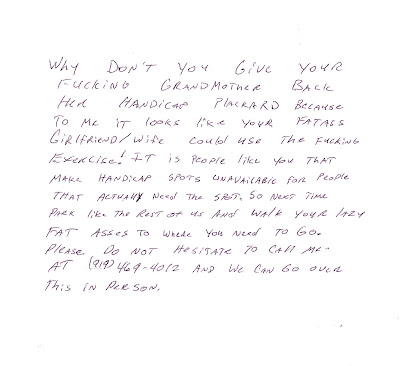 Why Don't you Give your
Fucking Grandmother Back
Her Handicap Plackard Because
To me it looks like your fatass
Girlfriend/wife could use the fucking
Exercise! It is people like you that
make Handicap spots unavailable for people
that actually need the spot. So next time
Park like the rest of us and walk your lazy
Fat asses to where you need to go.
Please Do not Hesitate to call me-
AT (919) 469-4012 and we can go over
this in person.